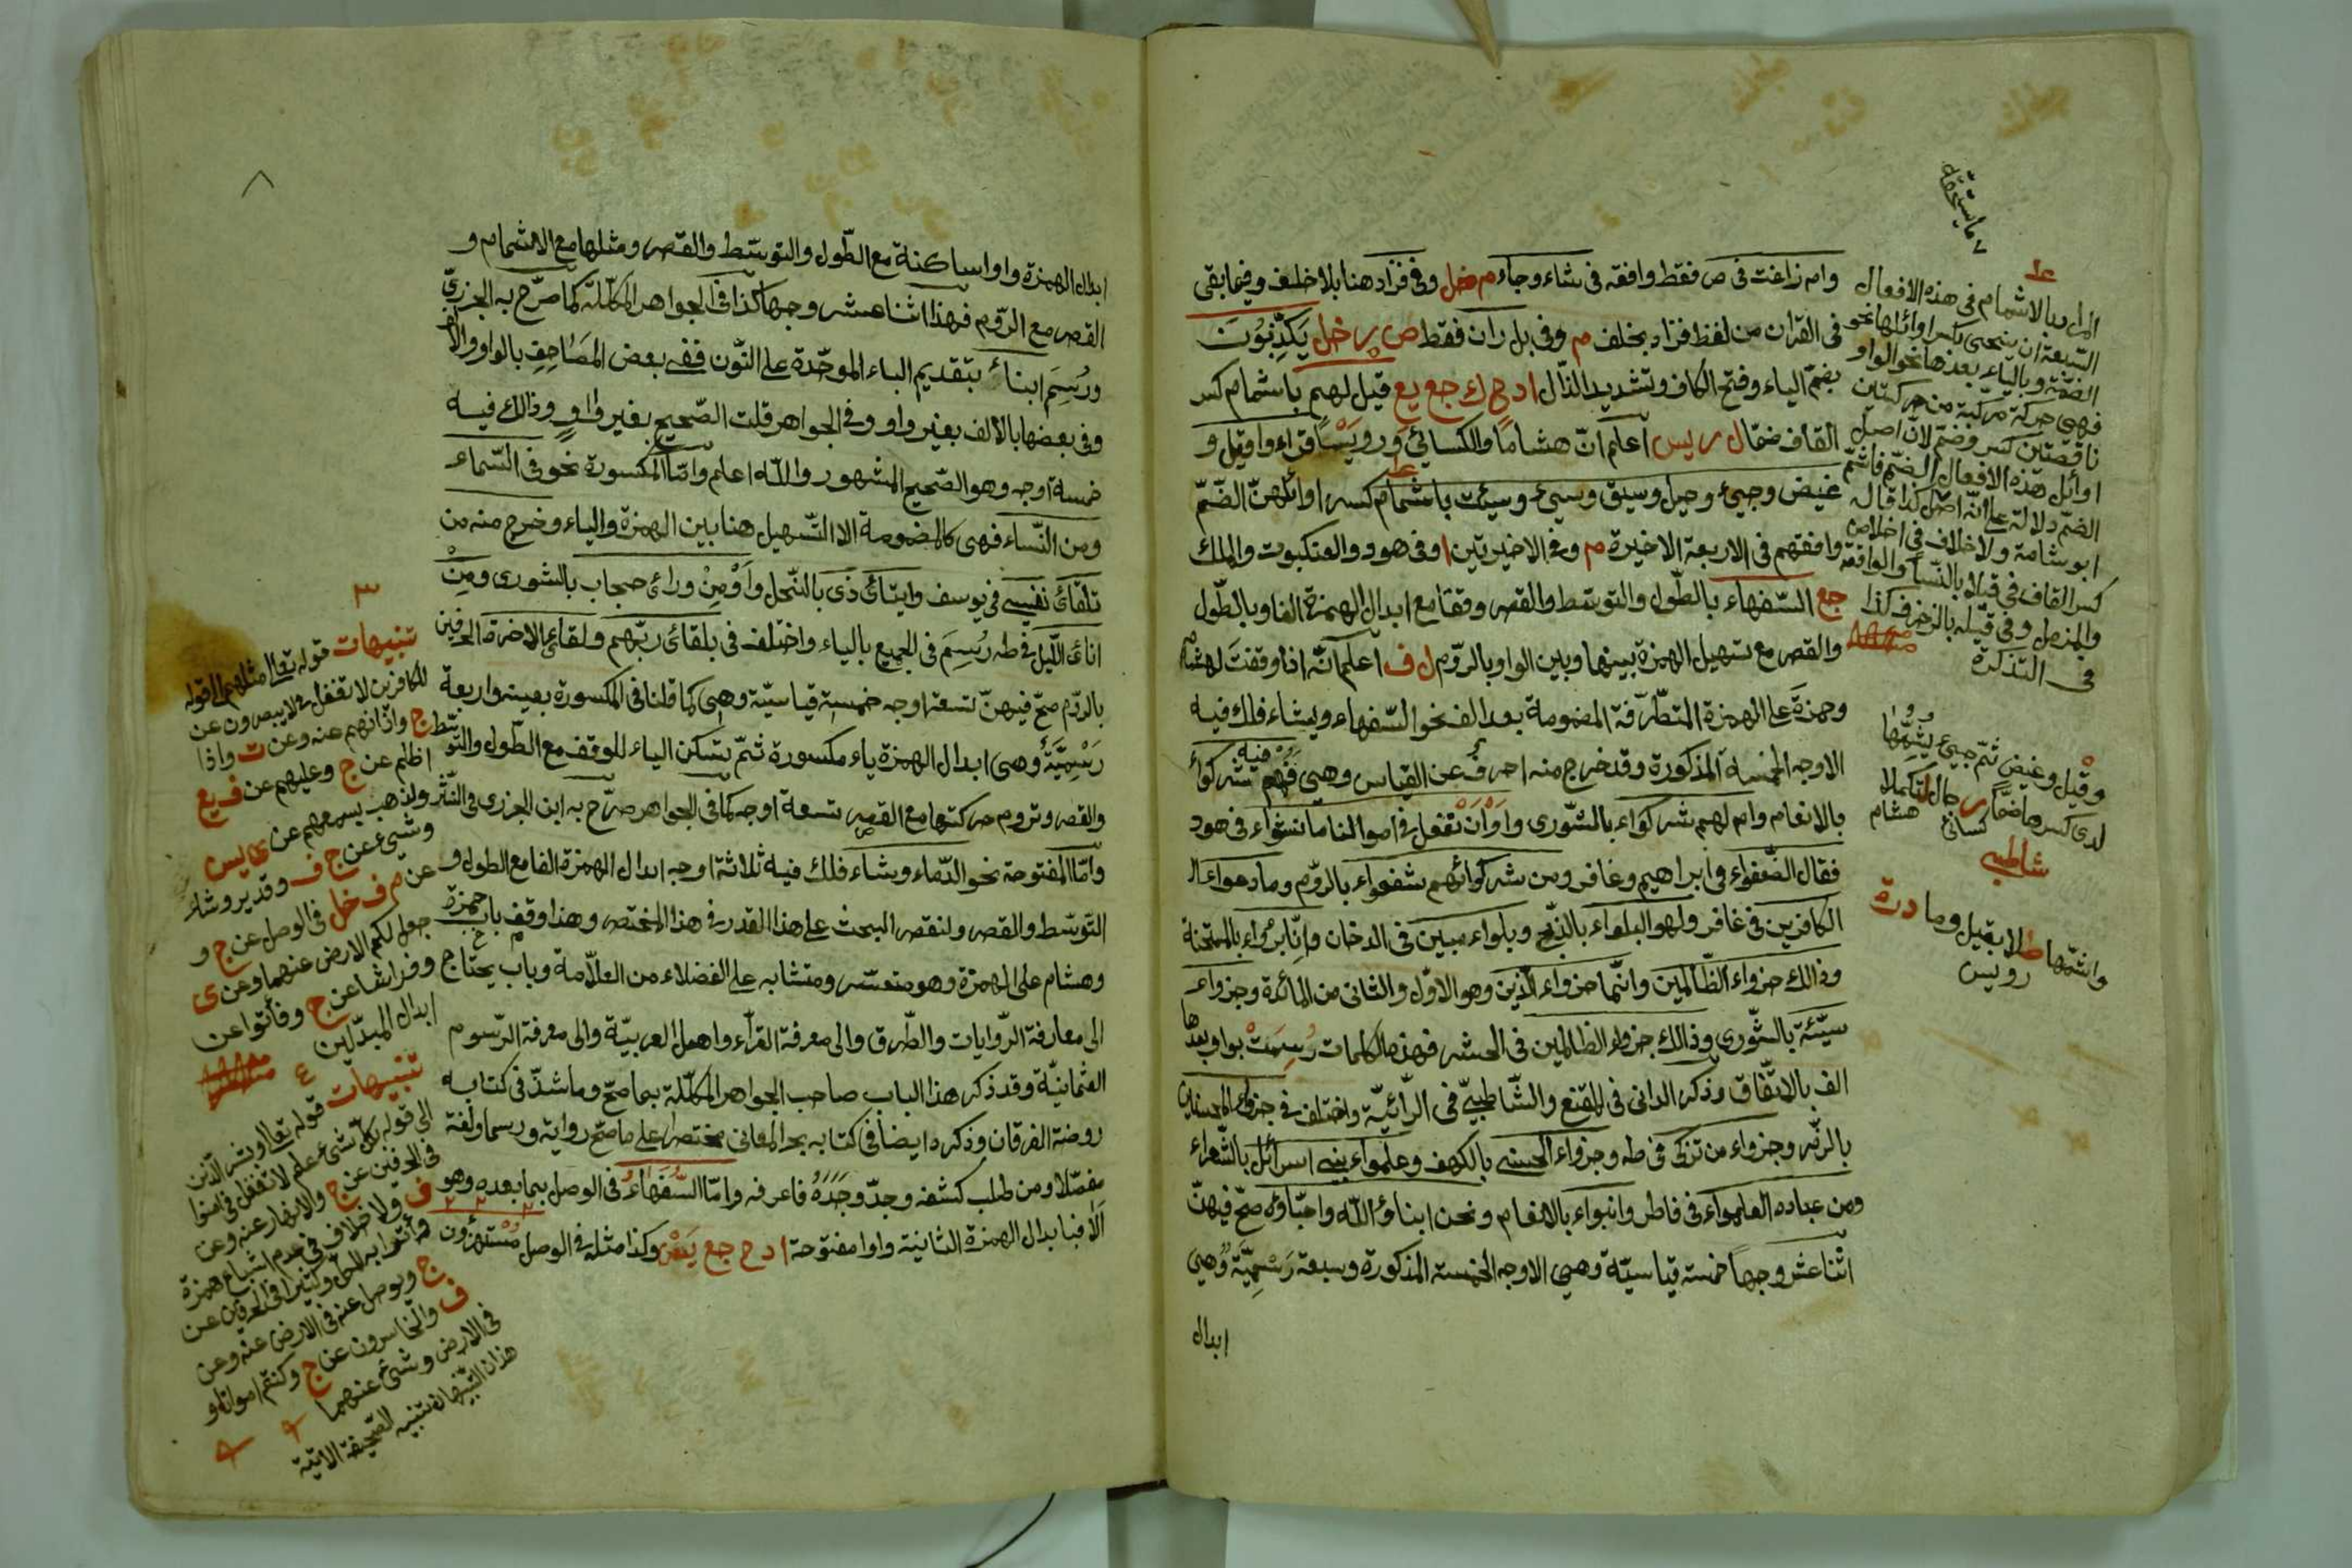 وام زاغت فى ص فقط وافقه فى شاء وجاء م فخل وفى فزاد هنا بلا خلف وفيما بقى
فى القرآن من لفظ فزاد بخلف م وفى بل ران فقط ص ر خل يَكْذِبُونَ
بضمّ الياء وفتح الكاف وتشديد الذّال ا د ح ك جع يع قيل لهم باشمام كسر
القاف ضمّا ل ر يس اعلم انّ هشامًا والكسائي ورويسًا قراءوا قيل و
غيض وجيء وحيل وسيق وسيء وسيئت باشمام كسر اوائلهنّ الضّمّ
وافقهم فى الاربعة الاخيرة م وفى الاخيرتين ا وفى هود والعنكبوت والملك
جع السّفهاء بالطّول والتوسّط والقصر وقفا مع ابدال الهمزة الفا وبالطّول
والقصر مع تسهيل الهمزة بينها وبين الواو بالرّوم ل ف اعلم انّه اذا وقفتَ لهشام
وحمزة على الهمزة المتطرّفة المضمومة بعد الف نحو السّفهاء ويشاء فلك فيه
الاوجه الخمسة المذكورة وقد خرج منه احرفٌ عن القياس وهى فيهم شركواء
بالانعام وام لهم شركواء بالشّورى واو ان نفعل فى اموالنا ما نشواء فى هود
فقال الضّعفواء فى ابراهيم وغافر ومن شركوائهم شفعواء بالرّوم وما دعواء
الكافرين فى غافر ولهو البلواء بالذّبح وبلواء مبين فى الدخان وانّا برءواء بالممتحنة
وذالك جزواء الظّالمين وانّما جزواء الّذين وهو الاوّل والثانى من المائدة وجزواء
سيّئة بالشّورى وذالك جزواء الظالمين فى الحشر فهذه الكلمات رُسِمَتْ بواو بعدها
الف بالاتّفاق وذكر الدانى فى المقنع والشّاطبيّ فى الرّائيّة واختلف فى جزواء المحسنين
بالزّمر وجزواء من تزكى فى طه وجزواء الحسنى بالكهف وعلمواء بنى اسرائل بالشّعراء
ومن عباده العلمواء فى فاطر وانبواء بالانعام ونحن ابناؤ الله واحبّاؤه صحّ فيهنّ
اثنا عشر وجهاً خمسة قياسيّة وهى الاوجه الخمسة المذكورة وسبعة رَسْمِيّةٌ وهى
ابدال
المراد بالاشمام فى هذه الافعال
السّبعة ان ينحى بكسر اوائلها نحو
الضّمّة وبالياء بعدها نحو الواو
فهى حركة مركّبة من حركتين
ناقصتين كسر وضمّ لانّ اصل
اوائل هذه الافعال الضّمّ فاشمّ
الضّمّ دلالة على انّه اصل كذا قاله
ابو شامة ولا خلاف فى اخلاص
كسر القاف فى قيلا بالنّساء والواقعة
والمزمل وفى قيله بالزخرف كذا
فى التذكرة
وقيل وغيض ثمّ جيء يشمّها
لدى كسرها ضمّاً رجال لتكملا
كسائى هشام
شاطبى
واشمّها طلا بقيل وما
رويس
درة
ابدال الهمزة واوا ساكنة مع الطّول والتوسّط والقصر ومثلها مع الاشمام و
القصر مع الرّوم فهذا اثنا عشر وجها كذا فى الجواهر المكلّلة كما صرّح به الجزريّ
ورُسِمَ ابناءُ بتقديم الباء الموحّدة على النّون ففى بعض المصَاحِفِ بالواو والالف
وفى بعضها بالالف بغير واو وفى الجواهر قلت الصّحيح بغير واوٍ وذالك فيه
خمسة اوجه وهو الصّحيح المشهور والله اعلم وامّا المكسورة نحو فى السّماء
ومن النّساء فهى كالمضمومة الا التّسهيل هنا بين الهمزة والياء وخرج منه من
تلقائ نفسى فى يوسف وايتائ ذى بالنّحل واَوْ مِنْ ورائ حجاب بالشورى ومِنْ
انائ الّليل فى طه رُسِمَ فى الجميع بالياء واختلف فى بلقائ ربّهم ولقائ الاخرة الحرفين
بالرّوم صحّ فيهنّ تسعة اوجه خمسة قياسيّة وهى كما قلنا فى المكسورة بعينه واربعة
رَسْمِيَّةٌ وهى ابدال الهمزة ياء مكسورة ثمّ تسكن الياء للوقف مع الطّول والتّوسّط
والقصر وتروم حركتها مع القصر تسعة اوجه كما فى الجواهر صرّح به ابن الجزرى فى النّشر
وامّا المفتوحة نحو الدّماء وشاء فلك فيه ثلاثة اوجه ابدال الهمزة الفا مع الطول و
التّوسّط والقصر ولنقصر البحث على هذا القدر فى هذا المختصر وهذا وقف باب حمزة
وهشام على الهمزة وهو متعسّر ومتشابه على الفضلاء من العلاّمة وباب يحتاج
الى معارفة الرّوايات والطّرق والى معرفة القرّاء واهل العربيّة والى معرفة الرّسوم
العثمانيّة وقد ذكر هذا الباب صاحب الجواهر المكلّلة بما صحّ وما شذّ فى كتابه
روضة الفرقان وذكره ايضا فى كتابه بحر المعانى مختصرا على ما صحّ رواية ورسما ولغة
مفصّلا ومن طلب كشفه وجدّ وجَدَهُ فاعرفه وامّا السُّفَهَاءُ فى الوصل بما بعده وهو
اَلاَ فبابدال الهمزة الثانية واوا مفتوحة ا د ح جع يَسْ وكذا مثله فى الوصل مُسْتَهْزِؤُن
٣
تنبيهات قوله تعالى مثلهم الى قوله
للكافرين لا تغفل فى لا يبصرون عن
ج واذانهم عنه وعن ت واذا
اظلم عن ج وعليهم عن ف يع
ولذهب بسمعهم عن ى يس
وشيء عن ج ف وقدير وشاء
عن م ف خل فى الوصل عن ج و
جعل لكم الارض عنهما وعن ى
وفراشا عن ج وفأتوا عن
ابدال المبدلين
٤
تنبيهات قوله تعالى وبشر الّذين
الى قوله بكلّ شىء عليم لا تغفل فى امنوا
فى الحرفين عن ج والانهار عنه وعن
ف ولا خلاف فى عدم اشباع همزة
وأتوا به للكلّ وكثيرا فى الحرفين عن
ج ويوصل عنه فى الارض عنه وعن
ف والخاسرون عن ج وكنتم امواتا و
فى الارض وشىء عنهما
هذان التنبيهان تتنبيه الصّحيفة الاتية